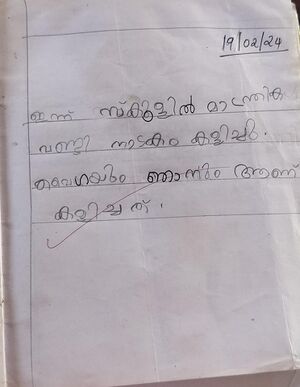 19/02/24
ഇന്ന് സ്കൂളിൽ മാന്ത്രിക
വണ്ടി നാടകം കളിച്ചു.
വൈഗയും ഞാനും ആണ്
കളിച്ചത്.